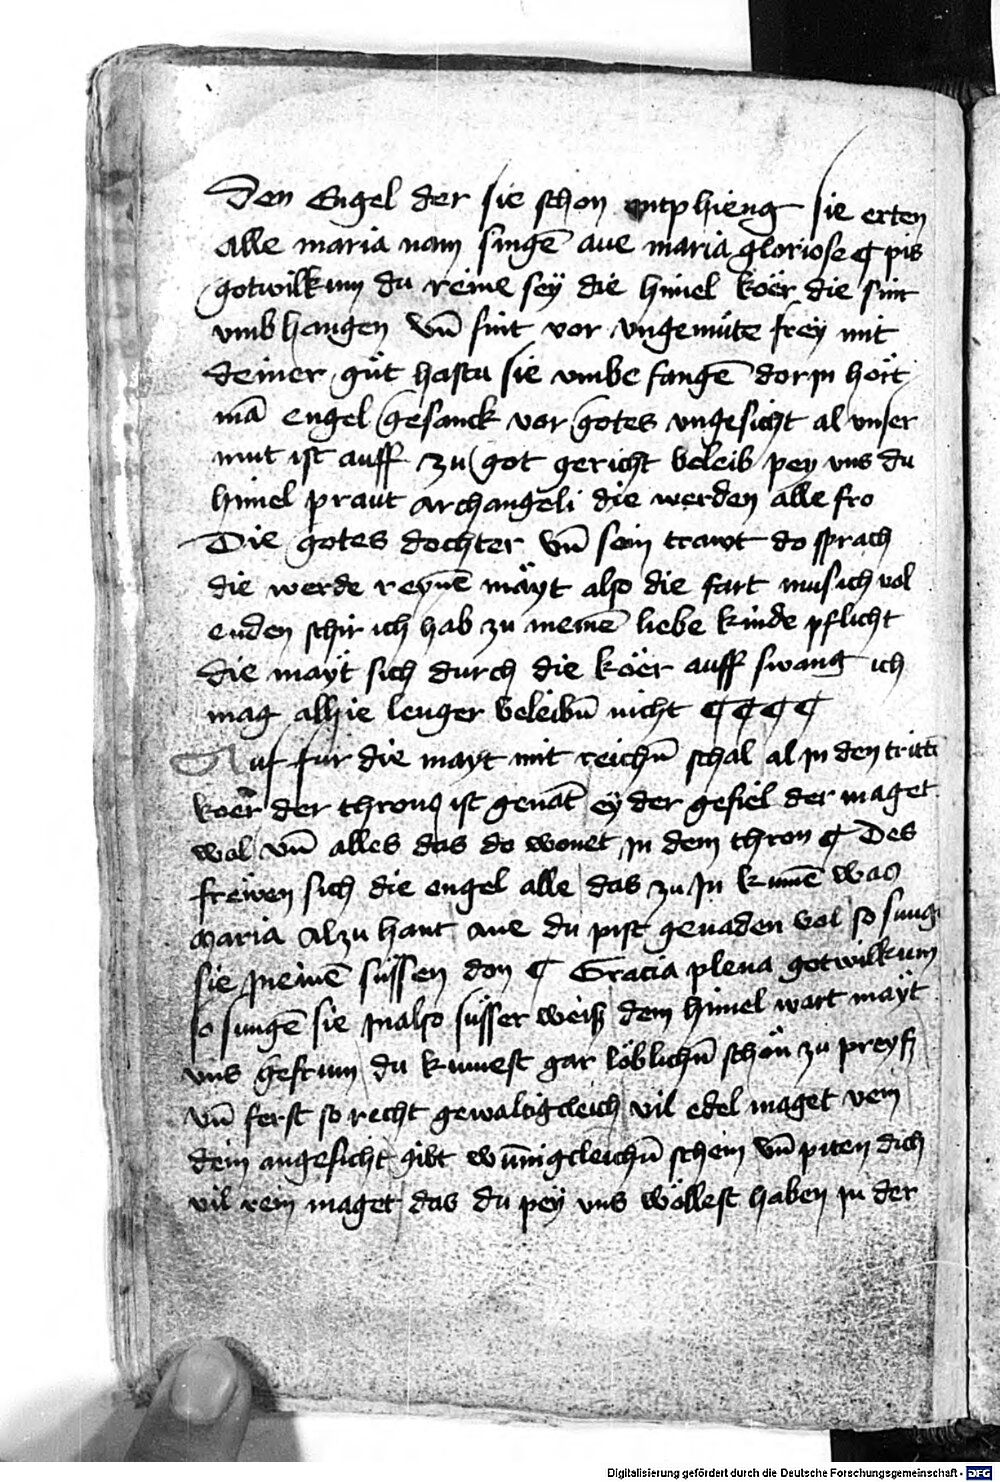 Den Engel der sie schon entphieng sie erten
Alle maria nam singē aue maria gloriose ¶ pis
gotwilkum du reine sey die himel köer die sint
vmb hangen vn̄ sint vor vngemüte frey mit
deiner güt hastu sie vmbe fangē dorjn hört
mā engel gesanck vor gotes angesicht al vnser
mut ist auff zu got gericht beleib pey vns du
himel praut archangeli die werden alle fro
Die gotes dochter vn̄ sein trawt do sprach
die werde reynē mäyt also die fart mus ich vol
enden schir ich hab zu meinē liebe kinde pflicht
die mayt sich durch die köer auff swang ich
mag alhie lenger beleibn̄ nicht ¶ ¶ ¶ ¶
Auf fur die mayt mit reichn̄ schal al jn den tritt
koer der thronꝗ ist genāt ey der gefiel der maget
wol vn̄ alles das do wonet jn dem thron ¶ Des
frewen sich die engel alle das zu jn kumē was
maria alzu hant aue du pist genaden vol so sung
sie jn einē süssen don ¶ Gracia plena gotwilkum
so sungē sie jn also süsser weiß dem himel wart mayt
vns gefrum du kumest gar löblichn̄ schön zu preyß
vn̄ ferst so recht gewaltigcleich vil edel maget vein
dein angesicht gibt wün̄igcleichn̄ schein vn̄ piten dich
vil rein maget das du pey vns wöllest haben jn der
Digitalisierung gefördert durch die Deutsche Forschungsgemeinschaft - DFG